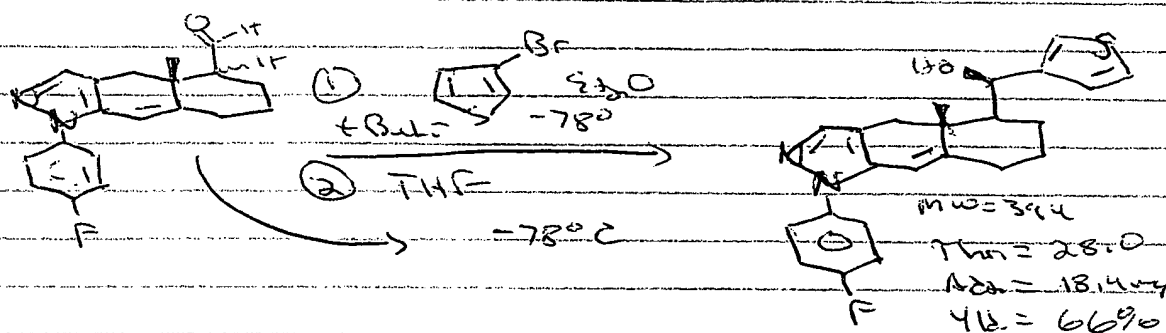 O H
Br
H
① Et₂O
t-BuLi S -78°
N
N
② THF
F
-78°C
HO S
N
N
F
MW = 394
Theor = 28.0
Act = 18.4 mg
Yld = 66%